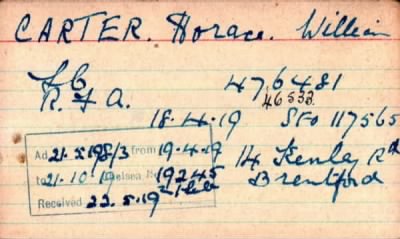 CARTER. Horace. William
R. F. A. 476481
46533
18.4.19 SFO 117565
Ad 21.5.19 8/3 from 19.4.19
to 21.10.19 Chelsea No 19245
Received 22.5.19
14 Kenley Rd
Brentford